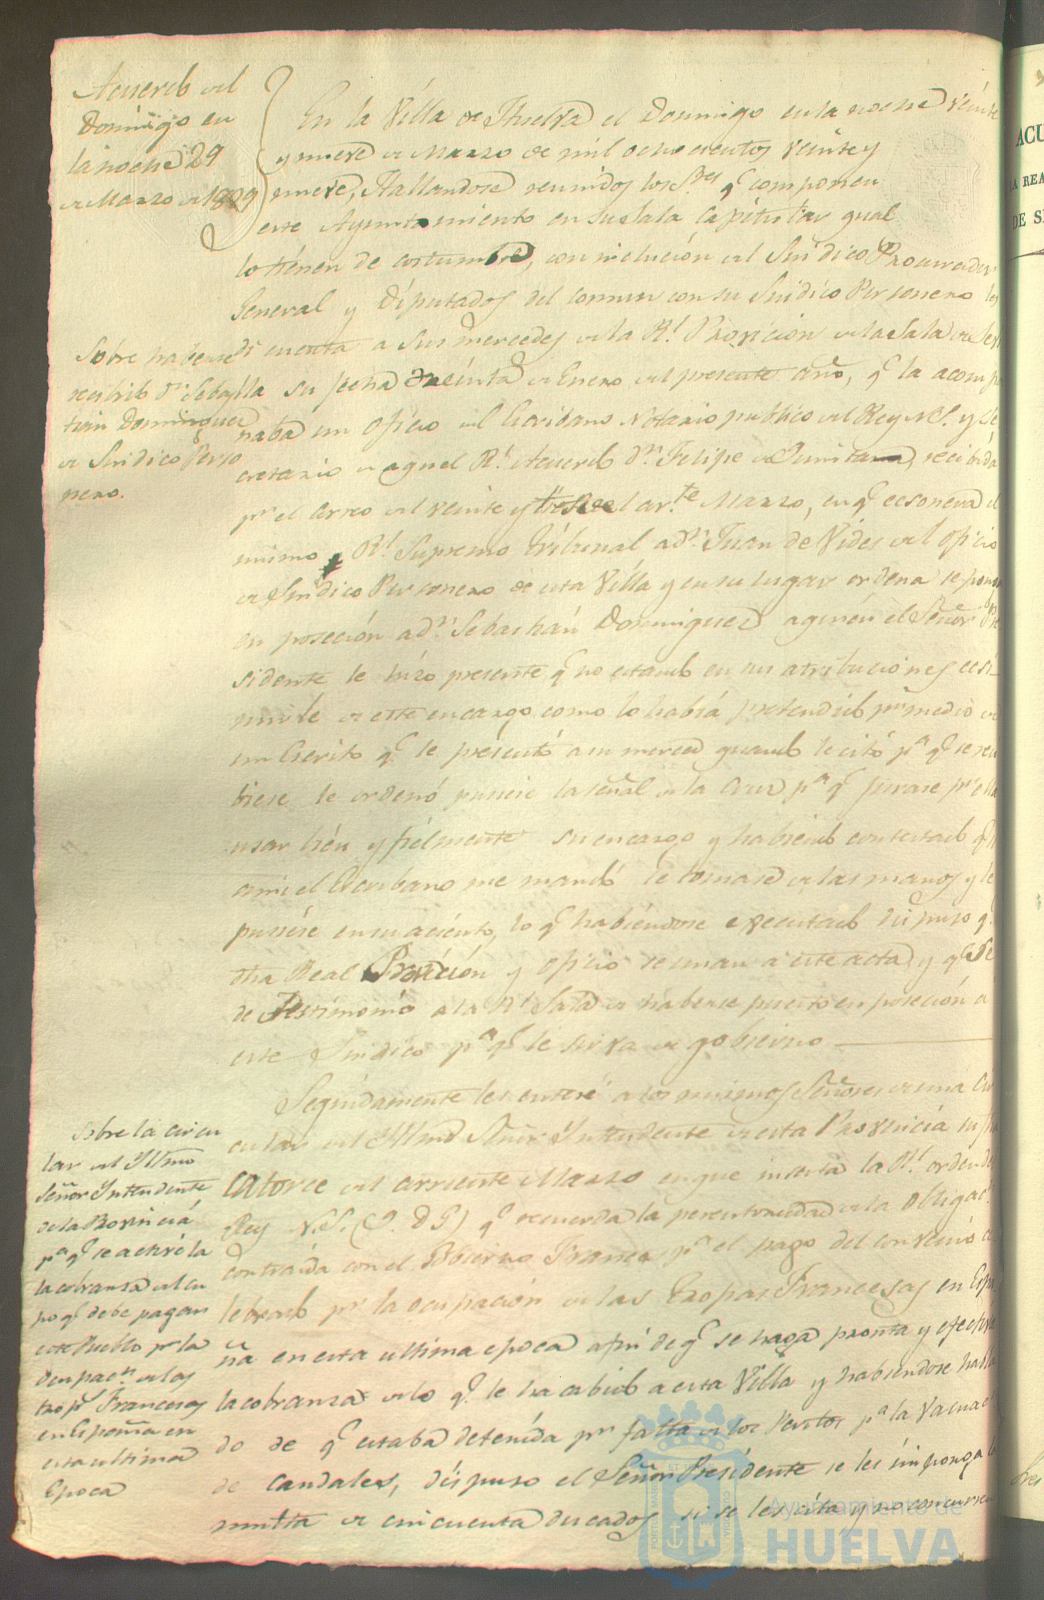 Acuerdo del
Domingo en
la noche 29
de Marzo de 1829
En la Villa de Huelva el Domingo en la noche veinte
y nueve de Marzo de mil ochocientos veinte y
nueve, Hallandose reunidos los S.res q.e componen
este Ayuntamiento en su Sala Capitular qual
lo tienen de costumbre, con inclución del Sindico Procurador
General y Diputados del comun con su Sindico Personero
Sobre haberse
recibido d.n Sebas
tian Dominguez
de Sindico Perso
nero.
di cuenta a Sus mercedes de la R.l Provicion de la Sala
su fecha treinta de Enero del presente año, q.e la acompa
ñaba un oficio del Escribano Notario publico del Rey N.S. y Se
cretario de aquel R.l Acuerdo d.n Felipe de Quintana, recibida
p.r el correo del veinte y del cor.te Marzo, en q.e ecsonera el
mismo R.l Supremo Tribunal a d.n Juan de Vides del oficio
de Sindico Personero de esta Villa y en su lugar ordena se ponga
en poseción a d.n Sebastián Dominguez a quien el Señor Pre
sidente le hizo presente q.e no estando en sus atribuciones ecsi
mirle de este encargo como lo había pretendido p.r medio de
un Escrito q.e le presentó a su merced quando le citó p.a q.e se reci
biese le ordenó pusiese la señal de la Cruz p.a q.e jurase p.r ella
usar bien y fielmente su encargo y habiendo contestado q.e
a mi el Escribano me mandó le tomase de las manos y le
pusiese en su aciento, lo q.e habiéndose executado dispuso q.e
dha Real Provición y oficio se unan a este acta y q.e se
de Testimonio a la R.l Sala de haberse puesto en poseción a
este Sindico p.a q.e le sirva de gobierno
Seguidamente les enteré a los mismos Señores de una Cir
cular del Yltmo Señor Yntendente de esta Provincia su fha
catorce del corriente Marzo en que inserta la R.l orden del
Rey N.S. (Q. D. G.) q.e recuerda la perentoriedad de la obligación
contraida con el Gobierno Frances p.a el pago del convenio ce
lebrado p.r la ocupación de las Tropas Francesas en Espa
ña en esta ultima epoca a fin de q.e se haga pronta y efectiva
la cobranza de lo q.e le ha cabido a esta Villa y habiendose habla
do de q.e estaba detenida p.r falta de los Peritos p.a la
de caudales, dispuso el Señor Presidente se les imponga la
multa de cincuenta ducados si se les cita y no concurren
Sobre la circu
lar del Yltmo
Señor Yntendente
de la Provincia
p.a q.e se active la
la cobranza del cu
po q.e debe pagar
este Pueblo p.r la
ocupac.n de las
trop.s Francesas
en España en
esta ultima
Epoca
Ayuntamiento de
HUELVA